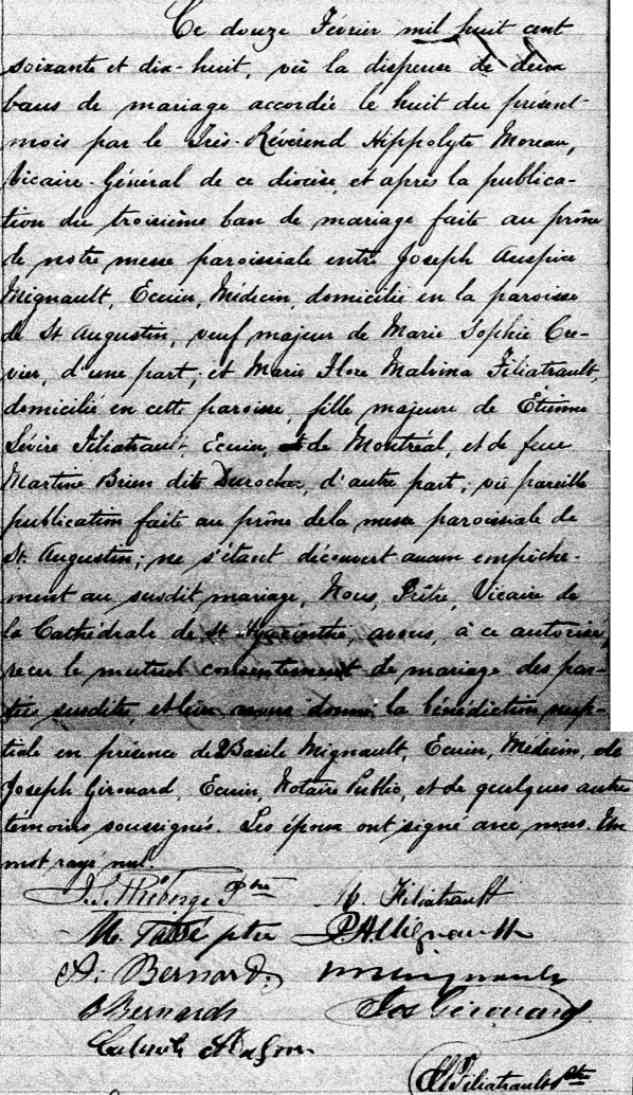 Ce douze Février mil huit cent
soixante et dix-huit, vu la dispense de deux
bans de mariage accordée le huit du présent
mois par le Très-Révérend Hippolyte Moreau,
Vicaire-Général de ce diocèse, et après la publica-
tion du troisième ban de mariage faite au prône
de notre messe paroissiale entre Joseph Auspice
Mignault, Ecuier, Médecin, domicilié en la paroisse
de St Augustin, veuf majeur de Marie Sophie Cre-
vier, d'une part; et Marie Flore Malvina Filiatrault,
domiciliée en cette paroisse, fille majeure de Étienne
Sévère Filiatrault, Ecuier, de Montréal, et de feue
Martine Brien dit Durocher, d'autre part; vu pareille
publication faite au prône dela messe paroissiale de
St. Augustin; ne s'étant découvert aucun empêche-
ment au susdit mariage, Nous, Prêtre, Vicaire de
la Cathédrale de St Hyacinthe, avons, à ce autorisé,
reçu le mutuel consentement de mariage des par-
ties susdites, et leur avons donné la bénédiction nup-
tiale en présence de Basile Mignault, Ecuier, Médecin, de
Joseph Girouard, Ecuier, Notaire Public, et de quelques autres
témoins soussignés. Les époux ont signé avec nous. Un
mot rayé nul.
J.S. Théberge Ptre M. Filiatrault
M. Tassé ptre JA Mignault
A. Bernard Mignault
Bernard Jos Girouard
Filiatrault Ptre